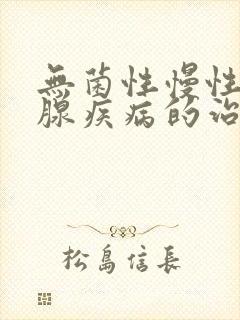 無菌性慢性
腺疾病的治
松島信長